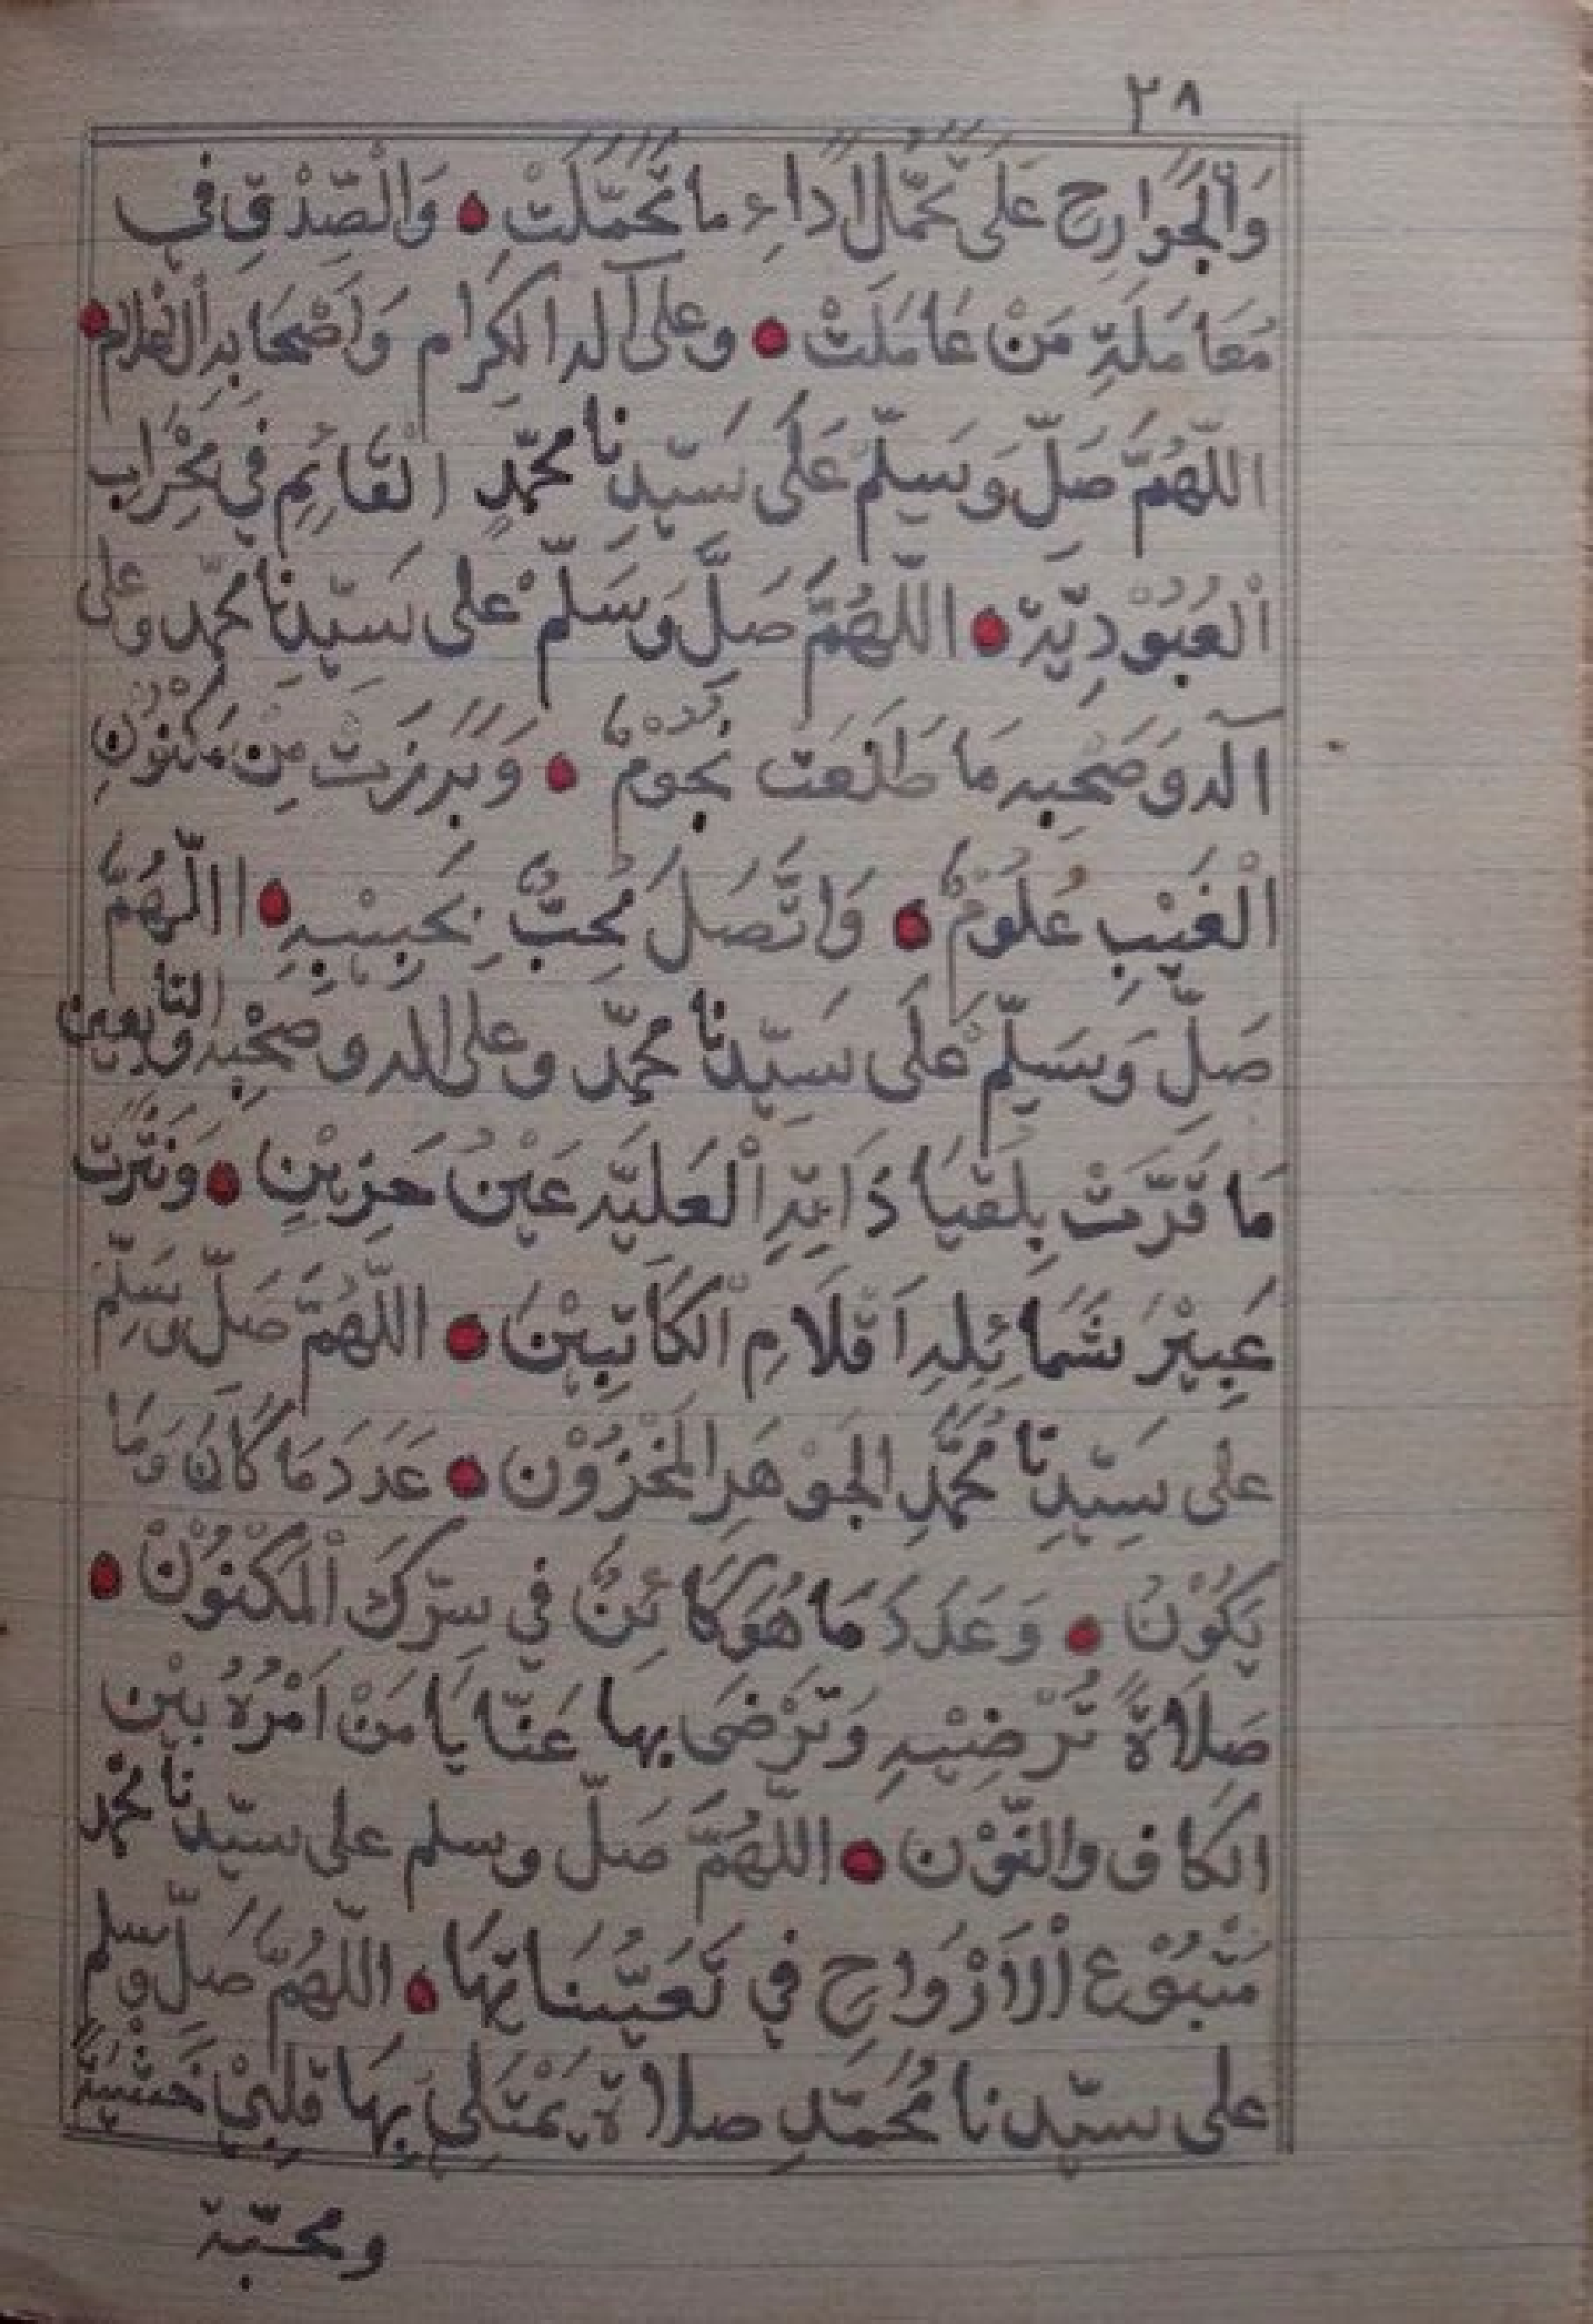 ٢٨
وَالْجَوَارِحِ عَلَى تَحَمُّلِ اَدَاءِ مَا تَحَمَّلَتْ • وَالْصِّدْقِ فِي
مُعَامَلَةِ مَنْ عَامَلَتْ • وعلى آله الكِرَام وَاَصْحَابِه •
اللّهُمَّ صَلِّ وَسَلِّمْ عَلَى سَيِّدِنَا محمّدٍ الْقَائِمِ فِي مِحْرَاب
الْعُبُوْدِيَّة • اللّهُمَّ صَلِّ وَسَلِّمْ على سَيِّدِنَا محمّد وعلى
آله وَصَحْبِه مَا طَلَعَتْ نُجُوْمٌ • وَبَرَزَتْ مِنْ مَكْنُوْنِ
الْغَيْبِ عُلُوْمٌ • وَاتَّصَلَ مُحِبٌّ بِحَبِيْبِهِ • اللّهُمَّ
صَلِّ وَسَلِّمْ عَلَى سَيِّدِنَا محمّد وعلى اله وصَحْبِه والتابعين
مَا قَرَّتْ بِلُقْيَا ذَاتِهِ الْعَلِيَّه عَيْنُ حَزِيْنٍ • وَنَثَرَتْ
عَبِيْرَ شَمَائِلِهِ اَقْلَامِ الْكَاتِبِيْنَ • اللّهُمَّ صَلِّ وسَلِّمْ
على سَيِّدِنَا مُحَمَّدِ الجَوْهَرِ المَخْزُوْن • عَدَدَ مَا كَانَ وَمَا
يَكُوْنُ • وَعَدَدَ مَا هُوَ كَائِنٌ فِي سِرِّكَ الْمَكْنُوْنْ •
صَلَاةً تُرْضِيْهِ وَتَرْضَى بِهَا عَنَّا يَا مَنْ اَمْرُهُ بَيْن
الكاف والنّوْن • اللّهُمَّ صَلِّ وسلم على سيّدنا محمد
مَتْبُوْعِ الْاَرْوَاحِ فِي تَعَيُّنَاتِهَا • اللّهُمَّ صَلِّ وسلم
على سيّدنا مُحَمَّدٍ صلاة يَمْتَلِئُ بِهَا قَلْبِيْ خَشْيَةً
ومحبّة